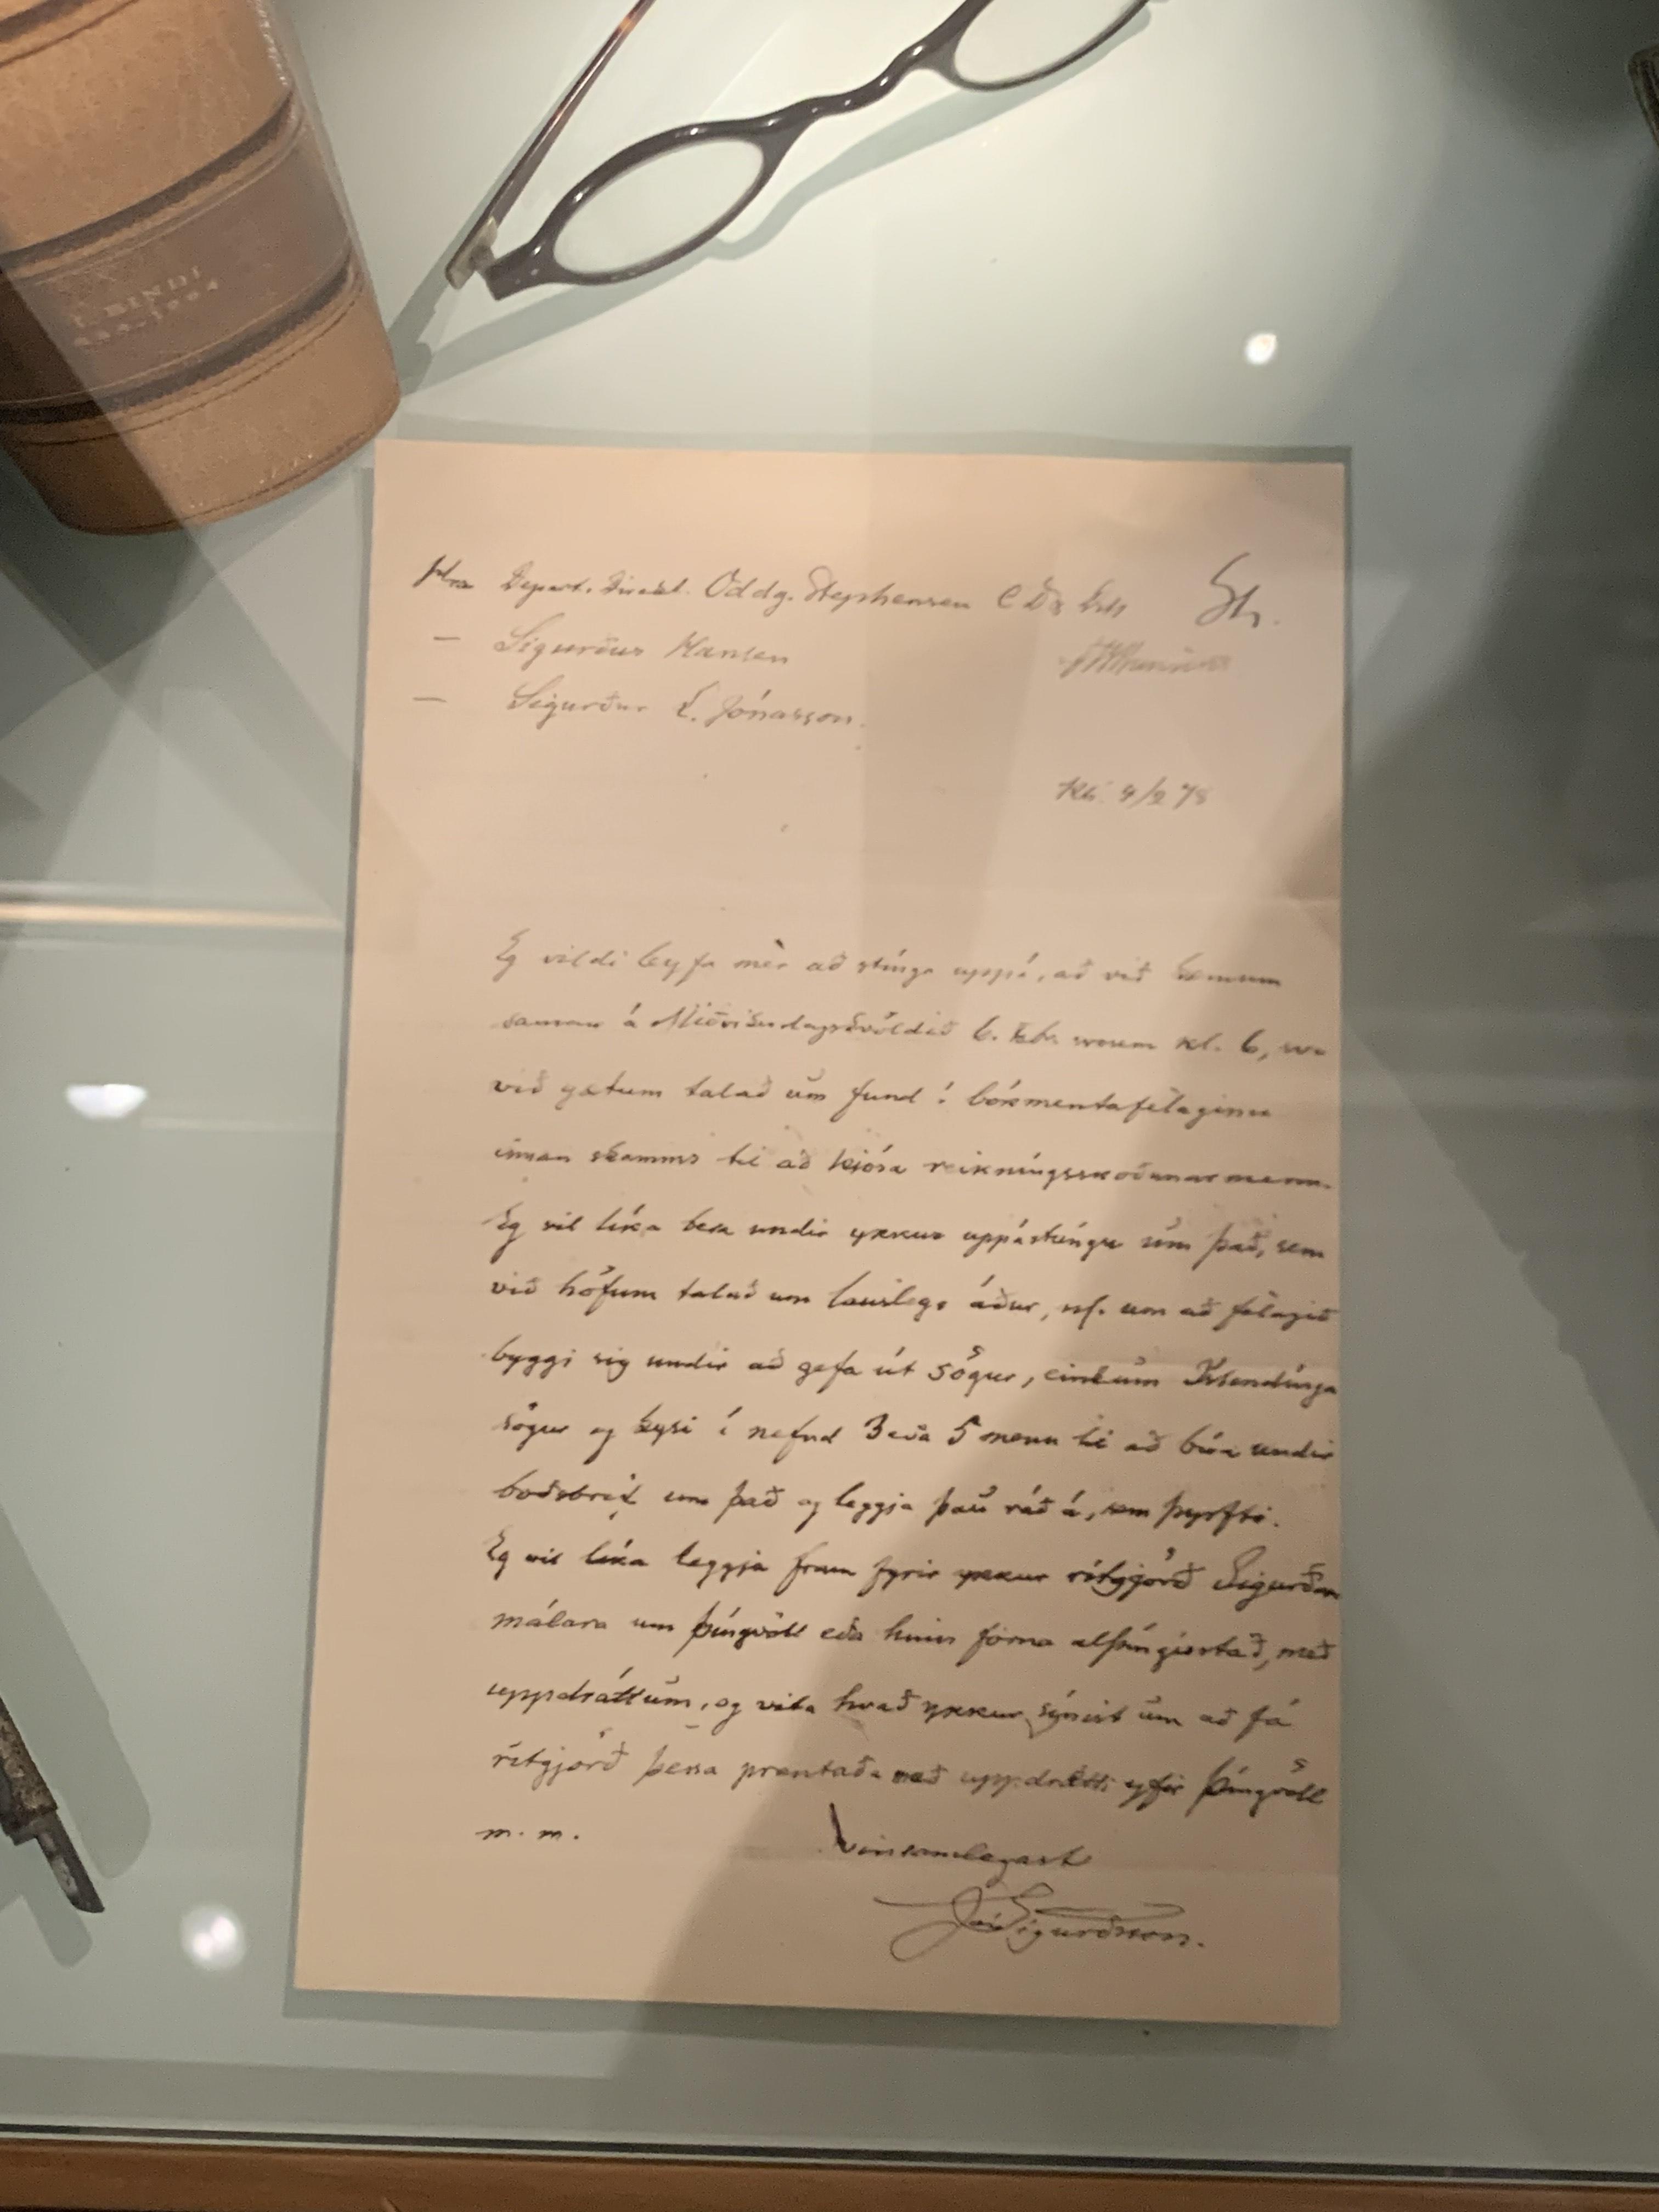 I. BINDI
Hra Depart. Direct. Oddg. Stephensen
St.
— Sigurður Hansen
— Sigurður L. Jónasson.
Kh. 4/2 78
Eg vildi leyfa mèr að stínga uppá, að við kæmum
saman á Miðvikudagskvöldið 6. Febr. kl. 6, svo
við gætum talað um fund í bókmentafèlaginu
innan skamms til að kjósa reikníngsskoðunarmenn.
Eg vil líka bera undir ykkur uppástúngu um það, sem
við höfum talað um lauslega áður, nf. um að fèlagið
byggi sig undir að gefa út sögur, einkum Íslendínga
sögur og kysi í nefnd 3 eða 5 menn til að búa undir
boðsbréf um það og leggja þau ráð á, sem þyrfti.
Eg vil líka leggja fram fyrir ykkur ritgjörð Sigurðar
málara um þíngvöll eða hinn forna alþíngisstað, með
uppdráttum, og vita hvað ykkur sýnist um að fá
ritgjörð þessa prentaða með uppdrætti yfir þíngvöll
m. m.
Vinsamlegast
Jón Sigurðsson.